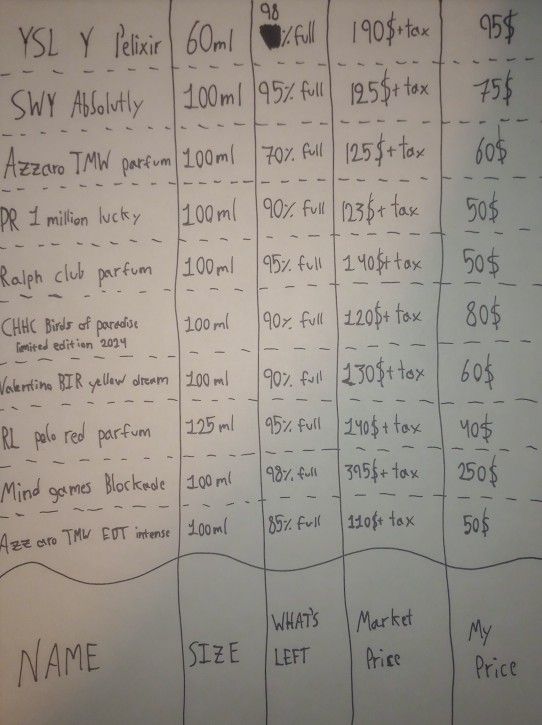 YSL Y l'elixir 60ml 98% full 190$+tax 95$
SWY Absolutly 100ml 95% full 125$+tax 75$
Azzaro TMW parfum 100ml 70% full 125$+tax 60$
PR 1 million lucky 100ml 90% full 123$+tax 50$
Ralph club parfum 100ml 95% full 140$+tax 50$
CHHC Birds of paradise 100ml 90% full 120$+tax 80$
limited edition 2024
Valentino BIR yellow dream 100ml 90% full 130$+tax 60$
RL polo red parfum 125ml 95% full 140$+tax 40$
Mind games Blockade 100ml 98% full 395$+tax 250$
Azzaro TMW EDT intense 100ml 85% full 110$+tax 50$
NAME SIZE WHAT'S LEFT Market Price My Price